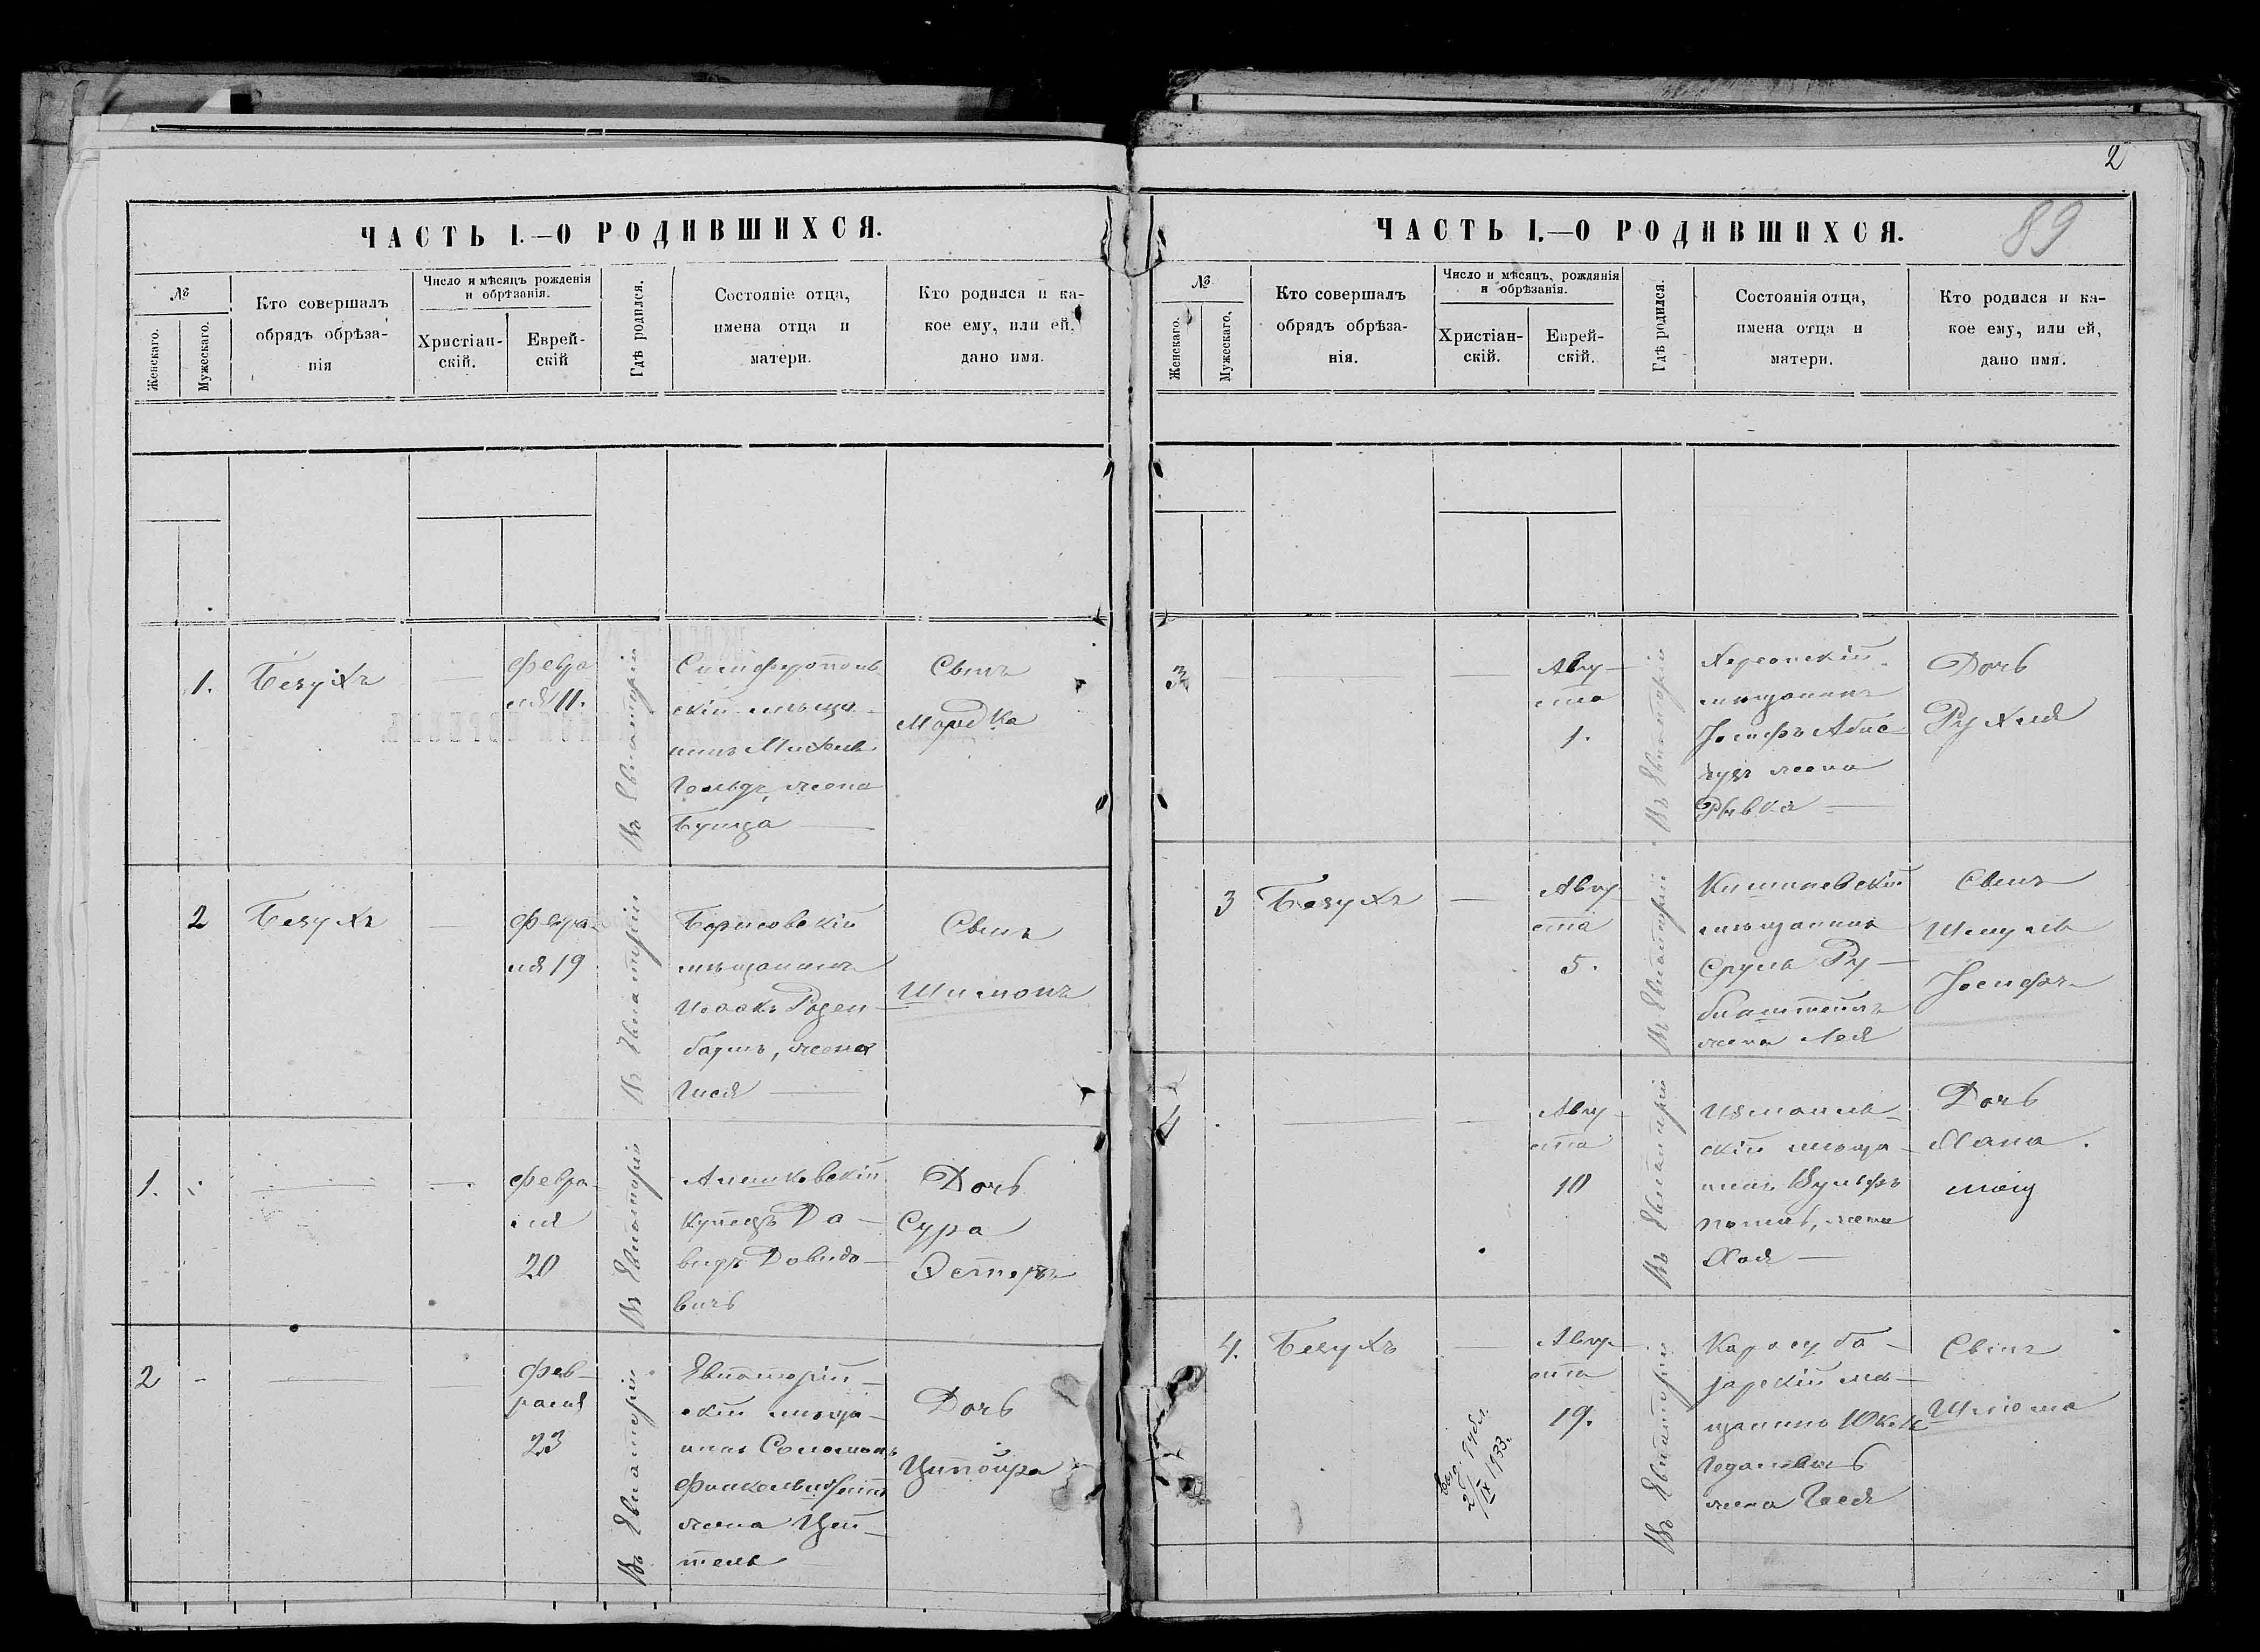 ЧАСТЬ I.—О РОДИВШИХСЯ.
№
Женскаго.
Мужескаго.
Кто совершалъ
обрядъ обрѣза-
нія
Число и мѣсяцъ рожденія
и обрѣзанія.
Христіан-
скій.
Еврей-
скій
Гдѣ родился.
Состояніе отца,
имена отца и
матери.
Кто родился и ка-
кое ему, или ей,
дано имя.
1.
Безухъ
—
Февра
ля 11.
Въ Евпаторіи
Симферополь
скій мѣща-
нинъ Михель
Гольдъ, жена
Бунца —
Сынъ
Мордка
2
Безухъ
—
Февра-
ля 19
Въ Евпаторіи
Борисовскій
мѣщанинъ
Исаакъ Розен-
баумъ, жена
Гися —
Сынъ
Шимонъ
1.
—
—
Февра-
ля
20
Въ Евпаторіи
Алешковскій
купецъ Да-
видъ Давидо-
вичъ
Дочь
Сура
Эстеръ
2
—
—
—
Фев-
раля
23
Въ Евпаторіи
Евпаторій-
скій мѣща-
нинъ Соломонъ
жена Цей-
тель
Дочь
Ципойра
2
89
ЧАСТЬ I.—О РОДИВШИХСЯ.
№
Женскаго.
Мужескаго.
Кто совершалъ
обрядъ обрѣза-
нія.
Число и мѣсяцъ, рожданія
и обрѣзанія.
Христіан-
скій.
Еврей-
скій.
Гдѣ родился.
Состоянія отца,
имена отца и
матери.
Кто родился и ка-
кое ему, или ей,
дано имя.
3
—
—
—
Авгу-
ста
1.
Въ Евпаторіи
Херсонскій
мѣщанинъ
Іосифъ
жена
Рывка —
Дочь
Рухля
3
Безухъ
—
Авгу-
ста
5.
Въ Евпаторіи
Кишиневскій
мѣщанинъ
Сруль Ру-
бинштейнъ
жена Лея
Сынъ
Шмуль
Іосифъ
4
—
—
Авгу-
ста
10
Въ Евпаторіи
Измаиль-
скій мѣща-
нинъ Вульфъ
жена
Хая —
Дочь
Хана
4.
Безухъ
—
2/IX 1933.
Авгу-
ста
19.
Въ Евпаторіи
Карасуба-
зарскій мѣ-
щанинъ
жена Гися
Сынъ
Шлюма